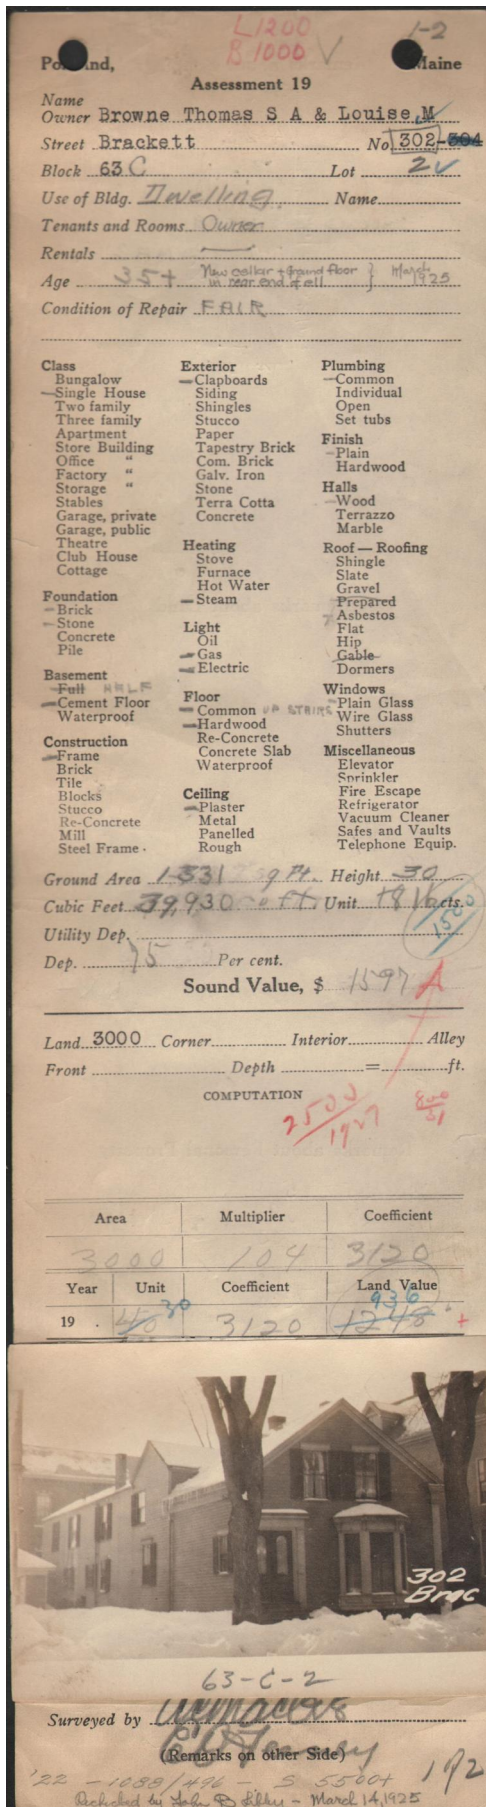 L1200
B1000 √
1-2
Portland, Maine
Assessment 19
Name
Owner Browne Thomas S A & Louise M
Street Brackett No 302-304
Block 63 C Lot 2
Use of Bldg. Dwelling Name
Tenants and Rooms Owner
Rentals —
Age 35+ New cellar + ground floor in rear end of ell } March 1925
Condition of Repair FAIR
Class
Bungalow
Single House
Two family
Three family
Apartment
Store Building
Office "
Factory "
Storage "
Stables
Garage, private
Garage, public
Theatre
Club House
Cottage
Foundation
Brick
Stone
Concrete
Pile
Basement
Full HALF
Cement Floor
Waterproof
Construction
Frame
Brick
Tile
Blocks
Stucco
Re-Concrete
Mill
Steel Frame
Exterior
Clapboards
Siding
Shingles
Stucco
Paper
Tapestry Brick
Com. Brick
Galv. Iron
Stone
Terra Cotta
Concrete
Heating
Stove
Furnace
Hot Water
Steam
Light
Oil
Gas
Electric
Floor
Common UP STAIRS
Hardwood
Re-Concrete
Concrete Slab
Waterproof
Ceiling
Plaster
Metal
Panelled
Rough
Plumbing
Common
Individual
Open
Set tubs
Finish
Plain
Hardwood
Halls
Wood
Terrazzo
Marble
Roof — Roofing
Shingle
Slate
Gravel
Prepared
Asbestos
Flat
Hip
Gable
Dormers
Windows
Plain Glass
Wire Glass
Shutters
Miscellaneous
Elevator
Sprinkler
Fire Escape
Refrigerator
Vacuum Cleaner
Safes and Vaults
Telephone Equip.
Ground Area 1331 sq ft. Height 30
Cubic Feet 39,930 c ft. Unit cts.
1500
Utility Dep.
Dep. 75 Per cent.
Sound Value, $ 1597 A
Land 3000 Corner Interior Alley
Front Depth = ft.
COMPUTATION
2500
1927
800
51
Area Multiplier Coefficient
3000 104 3120
Year Unit Coefficient Land Value
19 . 40 30 3120 1248 936 +
302
Brac
63-C-2
Surveyed by
(Remarks on other Side)
'22 - 1088/496 - S 5500+ 1 of 2
Rechecked by John B Libby - March 14, 1925